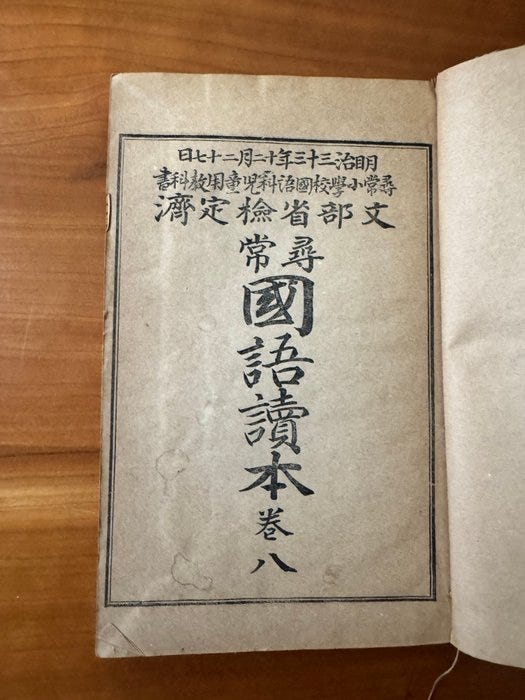 明治三十三年十二月二十七日
尋常小學校國語科兒童用敎科書
文部省檢定濟
尋常
國語讀本
卷八